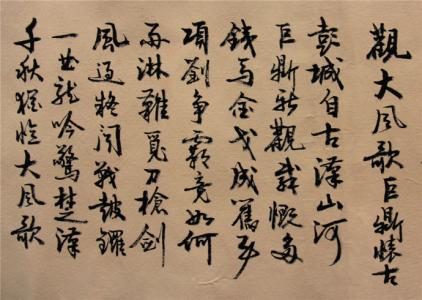 觀大風歌巨鼎懷古
彭城自古漢山河
巨鼎新觀感慨多
鐵馬金戈成舊夢
項劉爭霸竟如何
雨淋難覓刀槍劍
風過猶聞戰鼓鑼
一曲龍吟驚楚漢
千秋猶憶大風歌